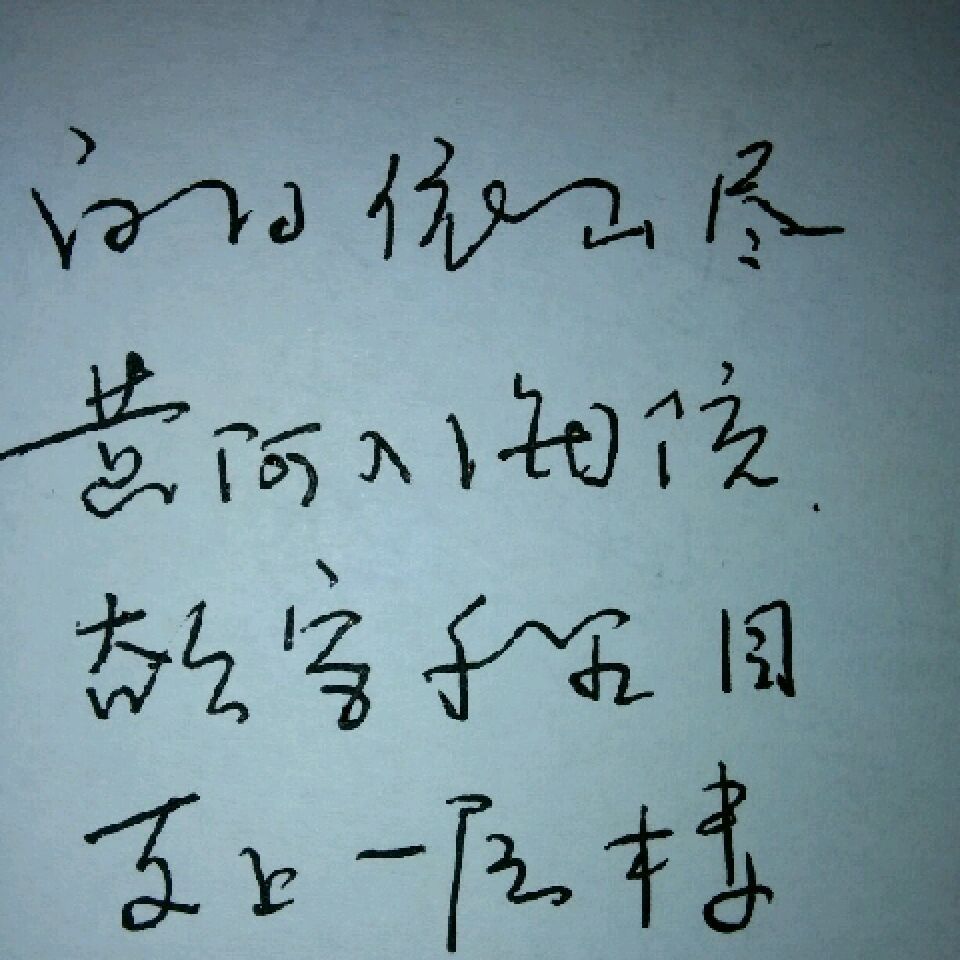 白日依山尽
黄河入海流.
欲穷千里目
更上一层楼